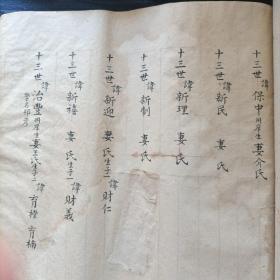 十三世 諱 保中 州庠生 妻介氏
十三世 諱 新民 妻 氏
十三世 諱 新理 妻 氏
十三世 諱 新制 妻 氏
十三世 諱 新迎 妻 氏 生子一 諱 財仁
十三世 諱 新禧 妻 氏 生子一 諱 財義
十三世 諱 治豐 州庠生 妻王氏 生子二 諱 育櫻 育楠